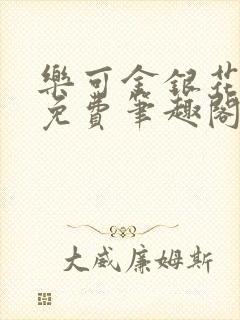 樂可金銀花
免費筆趣閣
大威廉姆斯